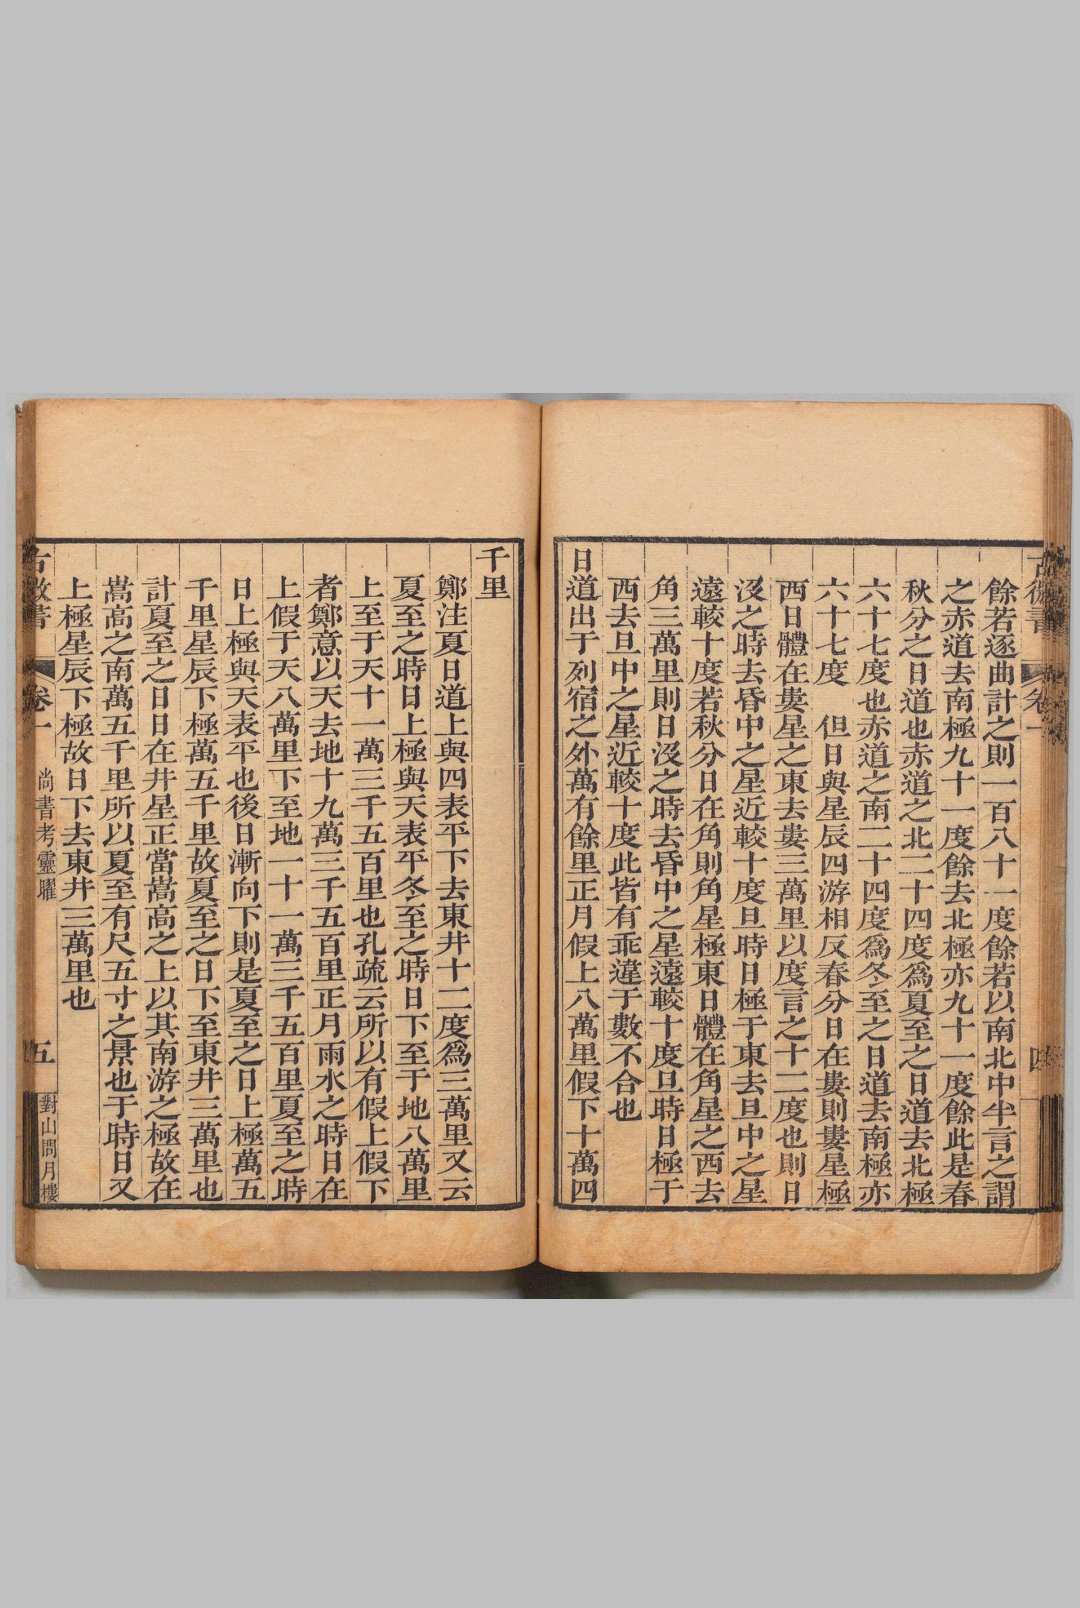 餘若逐曲計之則一百八十一度餘若以南北中半言之謂
之赤道去南極九十一度餘去北極亦九十一度餘此是春
秋分之日道也赤道之北二十四度爲夏至之日道去北極
六十七度也赤道之南二十四度爲冬至之日道去南極亦
六十七度　但日與星辰四游相反春分日在婁則婁星極
西日體在婁星之東去婁三萬里以度言之十二度也則日
沒之時去昏中之星近較十度旦時日極于東去旦中之星
遠較十度若秋分日在角則角星極東日體在角星之西去
角三萬里則日沒之時去昏中之星遠較十度旦時日極于
西去旦中之星近較十度此皆有乖違于數不合也
日道出于列宿之外萬有餘里正月假上八萬里假下十萬四
卷一
四
千里
鄭注夏日道上與四表平下去東井十二度爲三萬里又云
夏至之時日上極與天表平冬至之時日下至于地八萬里
上至于天十一萬三千五百里也孔疏云所以有假上假下
者鄭意以天去地十九萬三千五百里正月雨水之時日在
上假于天八萬里下至地一十一萬三千五百里夏至之時
日上極與天表平也後日漸向下則是夏至之日上極萬五
千里星辰下極萬五千里故夏至之日下至東井三萬里也
計夏至之日日在井星正當嵩高之上以其南游之極故在
嵩高之南萬五千里所以夏至有尺五寸之景也于時日又
上極星辰下極故日下去東井三萬里也
古微書
卷一
尚書考靈曜
五
對山問月樓